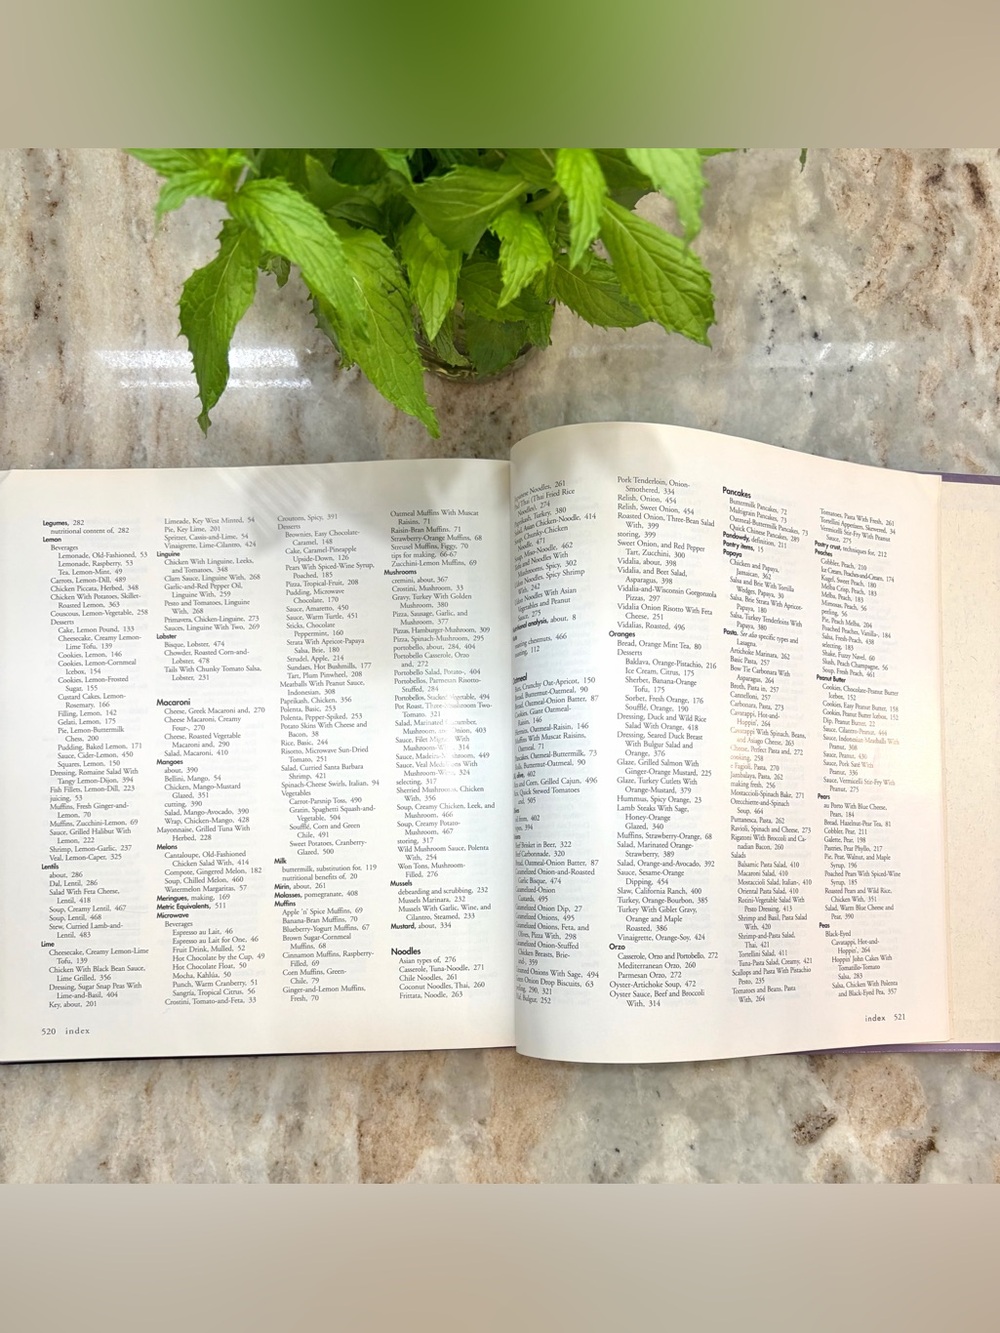 Legumes, 282
nutritional content of, 282
Lemon
Beverages
Lemonade, Old-Fashioned, 53
Lemonade, Raspberry, 53
Tea, Lemon-Mint, 49
Carrots, Lemon-Dill, 489
Chicken Piccata, Herbed, 348
Chicken With Potatoes, Skillet-
Roasted Lemon, 363
Couscous, Lemon-Vegetable, 258
Desserts
Cake, Lemon Pound, 133
Cheesecake, Creamy Lemon-
Lime Tofu, 139
Cookies, Lemon, 146
Cookies, Lemon-Cornmeal
Icebox, 154
Cookies, Lemon-Frosted
Sugar, 155
Custard Cakes, Lemon-
Rosemary, 166
Filling, Lemon, 142
Gelati, Lemon, 175
Pie, Lemon-Buttermilk
Chess, 200
Pudding, Baked Lemon, 171
Sauce, Cider-Lemon, 450
Squares, Lemon, 150
Dressing, Romaine Salad With
Tangy Lemon-Dijon, 394
Fish Fillets, Lemon-Dill, 223
juicing, 53
Muffins, Fresh Ginger-and-
Lemon, 70
Muffins, Zucchini-Lemon, 69
Sauce, Grilled Halibut With
Lemon, 222
Shrimp, Lemon-Garlic, 237
Veal, Lemon-Caper, 325
Lentils
about, 286
Dal, Lentil, 286
Salad With Feta Cheese,
Lentil, 418
Soup, Creamy Lentil, 467
Soup, Lentil, 468
Stew, Curried Lamb-and-
Lentil, 483
Lime
Cheesecake, Creamy Lemon-Lime
Tofu, 139
Chicken With Black Bean Sauce,
Lime Grilled, 356
Dressing, Sugar Snap Peas With
Lime-and-Basil, 404
Key, about, 201
520 index
Limeade, Key West Minted, 54
Pie, Key Lime, 201
Spritzer, Cassis-and-Lime, 54
Vinaigrette, Lime-Cilantro, 424
Linguine
Chicken With Linguine, Leeks,
and Tomatoes, 348
Clam Sauce, Linguine With, 268
Garlic-and-Red Pepper Oil,
Linguine With, 259
Pesto and Tomatoes, Linguine
With, 268
Primavera, Chicken-Linguine, 273
Sauces, Linguine With Two, 269
Lobster
Bisque, Lobster, 474
Chowder, Roasted Corn-and-
Lobster, 478
Tails With Chunky Tomato Salsa,
Lobster, 231
Macaroni
Cheese, Greek Macaroni and, 270
Cheese Macaroni, Creamy
Four-, 270
Cheese, Roasted Vegetable
Macaroni and, 290
Salad, Macaroni, 410
Mangoes
about, 390
Bellini, Mango, 54
Chicken, Mango-Mustard
Glazed, 351
cutting, 390
Salad, Mango-Avocado, 390
Wrap, Chicken-Mango, 428
Mayonnaise, Grilled Tuna With
Herbed, 228
Melons
Cantaloupe, Old-Fashioned
Chicken Salad With, 414
Compote, Gingered Melon, 182
Soup, Chilled Melon, 460
Watermelon Margaritas, 57
Meringues, making, 169
Metric Equivalents, 511
Microwave
Beverages
Espresso au Lait, 46
Espresso au Lait for One, 46
Fruit Drink, Mulled, 52
Hot Chocolate by the Cup, 49
Hot Chocolate Float, 50
Mocha, Kahlúa, 50
Punch, Warm Cranberry, 51
Sangría, Tropical Citrus, 56
Crostini, Tomato-and-Feta, 33
Croutons, Spicy, 391
Desserts
Brownies, Easy Chocolate-
Caramel, 148
Cake, Caramel-Pineapple
Upside-Down, 126
Pears With Spiced-Wine Syrup,
Poached, 185
Pizza, Tropical-Fruit, 208
Pudding, Microwave
Chocolate, 170
Sauce, Amaretto, 450
Sauce, Warm Turtle, 451
Sticks, Chocolate
Peppermint, 160
Strata With Apricot-Papaya
Salsa, Brie, 180
Strudel, Apple, 214
Sundaes, Hot Bushmills, 177
Tart, Plum Pinwheel, 208
Meatballs With Peanut Sauce,
Indonesian, 308
Paprikash, Chicken, 356
Polenta, Basic, 253
Polenta, Pepper-Spiked, 253
Potato Skins With Cheese and
Bacon, 38
Rice, Basic, 244
Risotto, Microwave Sun-Dried
Tomato, 251
Salad, Curried Santa Barbara
Shrimp, 421
Spinach-Cheese Swirls, Italian, 94
Vegetables
Carrot-Parsnip Toss, 490
Gratin, Spaghetti Squash-and-
Vegetable, 504
Soufflé, Corn and Green
Chile, 491
Sweet Potatoes, Cranberry-
Glazed, 500
Milk
buttermilk, substitution for, 119
nutritional benefits of, 20
Mirin, about, 261
Molasses, pomegranate, 408
Muffins
Apple 'n' Spice Muffins, 69
Banana-Bran Muffins, 70
Blueberry-Yogurt Muffins, 67
Brown Sugar-Cornmeal
Muffins, 68
Cinnamon Muffins, Raspberry-
Filled, 69
Corn Muffins, Green-
Chile, 79
Ginger-and-Lemon Muffins,
Fresh, 70
Oatmeal Muffins With Muscat
Raisins, 71
Raisin-Bran Muffins, 71
Strawberry-Orange Muffins, 68
Streusel Muffins, Figgy, 70
tips for making, 66-67
Zucchini-Lemon Muffins, 69
Mushrooms
cremini, about, 367
Crostini, Mushroom, 33
Gravy, Turkey With Golden
Mushroom, 380
Pizza, Sausage, Garlic, and
Mushroom, 377
Pizzas, Hamburger-Mushroom, 309
Pizza, Spinach-Mushroom, 295
portobello, about, 284, 404
Portobello Casserole, Orzo
and, 272
Portobello Salad, Potato-, 404
Portobellos, Parmesan Risotto-
Stuffed, 284
Portobellos, Vegetable, 494
Pot Roast, Two-
Tomato, 321
Salad, Marinated
Mushroom, Onion, 403
Sauce, Filet With
Mushroom, 314
449
Mushroom-, 324
Sherried Chicken
With, 356
Soup, Creamy Chicken, Leek, and
Mushroom, 466
Soup, Creamy Potato-
Mushroom, 467
storing, 317
Wild Mushroom Sauce, Polenta
With, 254
Won Tons, Mushroom-
Filled, 276
Mussels
debearding and scrubbing, 232
Mussels Marinara, 232
Mussels With Garlic, Wine, and
Cilantro, Steamed, 233
Mustard, about, 334
Noodles
Asian types of, 276
Casserole, Tuna-Noodle, 271
Chile Noodles, 261
Coconut Noodles, Thai, 260
Frittata, Noodle, 263
Noodles, 261
Thai (Thai Fried Rice
Noodles), 274
Paprikash, Turkey, 380
Asian Chicken-Noodle, 414
Chunky-Chicken
Noodle, 471
-Noodle, 462
Noodles With
Mushrooms, Spicy, 302
Noodles, Spicy Shrimp
With, 242
Noodles With Asian
Vegetables and Peanut
Sauce, 275
analysis, about, 8
chestnuts, 466
112
Crunchy Oat-Apricot, 150
Buttermilk-Oatmeal, 90
Oatmeal-Onion Batter, 87
Giant Oatmeal-
Raisin, 146
Oatmeal-Raisin, 146
With Muscat Raisins,
Oatmeal, 71
Oatmeal-Buttermilk, 73
Buttermilk-Oatmeal, 90
402
and Corn, Grilled Cajun, 496
Quick Stewed Tomatoes
and, 505
from, 402
394
Brisket in Beer, 322
Carbonnade, 320
Oatmeal-Onion Batter, 87
Onion-and-Roasted
Garlic Bisque, 474
Onion
Custards, 495
Onion Dip, 27
Onions, 495
Onions, Feta, and
Olives, Pizza With, 298
Onion-Stuffed
Chicken Breasts, Brie-
and-, 359
Onions With Sage, 494
Onion Drop Biscuits, 63
290, 321
Bulgur, 252
Pork Tenderloin, Onion-
Smothered, 334
Relish, Onion, 454
Relish, Sweet Onion, 454
Roasted Onion, Three-Bean Salad
With, 399
storing, 399
Sweet Onion, and Red Pepper
Tart, Zucchini, 300
Vidalia, about, 398
Vidalia, and Beet Salad,
Asparagus, 398
Vidalia-and-Wisconsin Gorgonzola
Pizzas, 297
Vidalia Onion Risotto With Feta
Cheese, 251
Vidalias, Roasted, 496
Oranges
Bread, Orange Mint Tea, 80
Desserts
Baklava, Orange-Pistachio, 216
Ice Cream, Citrus, 175
Sherbet, Banana-Orange
Tofu, 175
Sorbet, Fresh Orange, 176
Soufflé, Orange, 190
Dressing, Duck and Wild Rice
Salad With Orange, 418
Dressing, Seared Duck Breast
With Bulgur Salad and
Orange, 376
Glaze, Grilled Salmon With
Ginger-Orange Mustard, 225
Glaze, Turkey Cutlets With
Orange-Mustard, 379
Hummus, Spicy Orange, 23
Lamb Steaks With Sage,
Honey-Orange
Glazed, 340
Muffins, Strawberry-Orange, 68
Salad, Marinated Orange-
Strawberry, 389
Salad, Orange-and-Avocado, 392
Sauce, Sesame-Orange
Dipping, 454
Slaw, California Ranch, 400
Turkey, Orange-Bourbon, 385
Turkey With Giblet Gravy,
Orange and Maple
Roasted, 386
Vinaigrette, Orange-Soy, 424
Orzo
Casserole, Orzo and Portobello, 272
Mediterranean Orzo, 260
Parmesan Orzo, 272
Oyster-Artichoke Soup, 472
Oyster Sauce, Beef and Broccoli
With, 314
Pancakes
Buttermilk Pancakes, 72
Multigrain Pancakes, 73
Oatmeal-Buttermilk Pancakes, 73
Quick Chinese Pancakes, 289
Pandowdy, definition, 211
Pantry items, 15
Papaya
Chicken and Papaya,
Jamaican, 362
Salsa and Brie With Tortilla
Wedges, Papaya, 30
Salsa, Brie Strata With Apricot-
Papaya, 180
Salsa, Turkey Tenderloins With
Papaya, 380
Pasta. See also specific types and
Lasagna.
Artichoke Marinara, 262
Basic Pasta, 257
Bow Tie Carbonara With
Asparagus, 264
Broth, Pasta in, 257
Cannelloni, 257
Carbonara, Pasta, 273
Cavatappi, Hot-and-
Hoppin', 264
Cavatappi With Spinach, Beans,
and Asiago Cheese, 263
Cheese, Perfect Pasta and, 272
cooking, 258
e Fagioli, Pasta, 270
Jambalaya, Pasta, 262
making fresh, 256
Mostaccioli-Spinach Bake, 271
Orecchiette-and-Spinach
Soup, 464
Puttanesca, Pasta, 262
Ravioli, Spinach and Cheese, 273
Rigatoni With Broccoli and Ca-
nadian Bacon, 260
Salads
Balsamic Pasta Salad, 410
Macaroni Salad, 410
Mostaccioli Salad, Italian-, 410
Oriental Pasta Salad, 410
Rotini-Vegetable Salad With
Pesto Dressing, 413
Shrimp and Basil, Pasta Salad
With, 420
Shrimp-and-Pasta Salad,
Thai, 421
Tortellini Salad, 411
Tuna-Pasta Salad, Creamy, 421
Scallops and Pasta With Pistachio
Pesto, 235
Tomatoes and Beans, Pasta
With, 264
Tomatoes, Pasta With Fresh, 261
Tortellini Appetizers, Skewered, 34
Vermicelli Stir-Fry With Peanut
Sauce, 275
Pastry crust, techniques for, 212
Peaches
Cobbler, Peach, 210
Ice Cream, Peaches-and-Cream, 174
Kugel, Sweet Peach, 180
Melba Crisp, Peach, 183
Melba, Peach, 183
Mimosas, Peach, 56
peeling, 56
Pie, Peach Melba, 204
Poached Peaches, Vanilla-, 184
Salsa, Fresh-Peach, 438
selecting, 183
Shake, Fuzzy Navel, 60
Slush, Peach Champagne, 56
Soup, Fresh Peach, 461
Peanut Butter
Cookies, Chocolate-Peanut Butter
Icebox, 152
Cookies, Easy Peanut Butter, 158
Cookies, Peanut Butter Icebox, 152
Dip, Peanut Butter, 22
Sauce, Cilantro-Peanut, 444
Sauce, Indonesian Meatballs With
Peanut, 308
Sauce, Peanut, 436
Sauce, Pork Saté With
Peanut, 336
Sauce, Vermicelli Stir-Fry With
Peanut, 275
Pears
au Porto With Blue Cheese,
Pears, 184
Bread, Hazelnut-Pear Tea, 81
Cobbler, Pear, 211
Galette, Pear, 198
Pastries, Pear Phyllo, 217
Pie, Pear, Walnut, and Maple
Syrup, 196
Poached Pears With Spiced-Wine
Syrup, 185
Roasted Pears and Wild Rice,
Chicken With, 351
Salad, Warm Blue Cheese and
Pear, 390
Peas
Black-Eyed
Cavatappi, Hot-and-
Hoppin', 264
Hoppin' John Cakes With
Tomatillo-Tomato
Salsa, 283
Salsa, Chicken With Polenta
and Black-Eyed Pea, 357
index 521